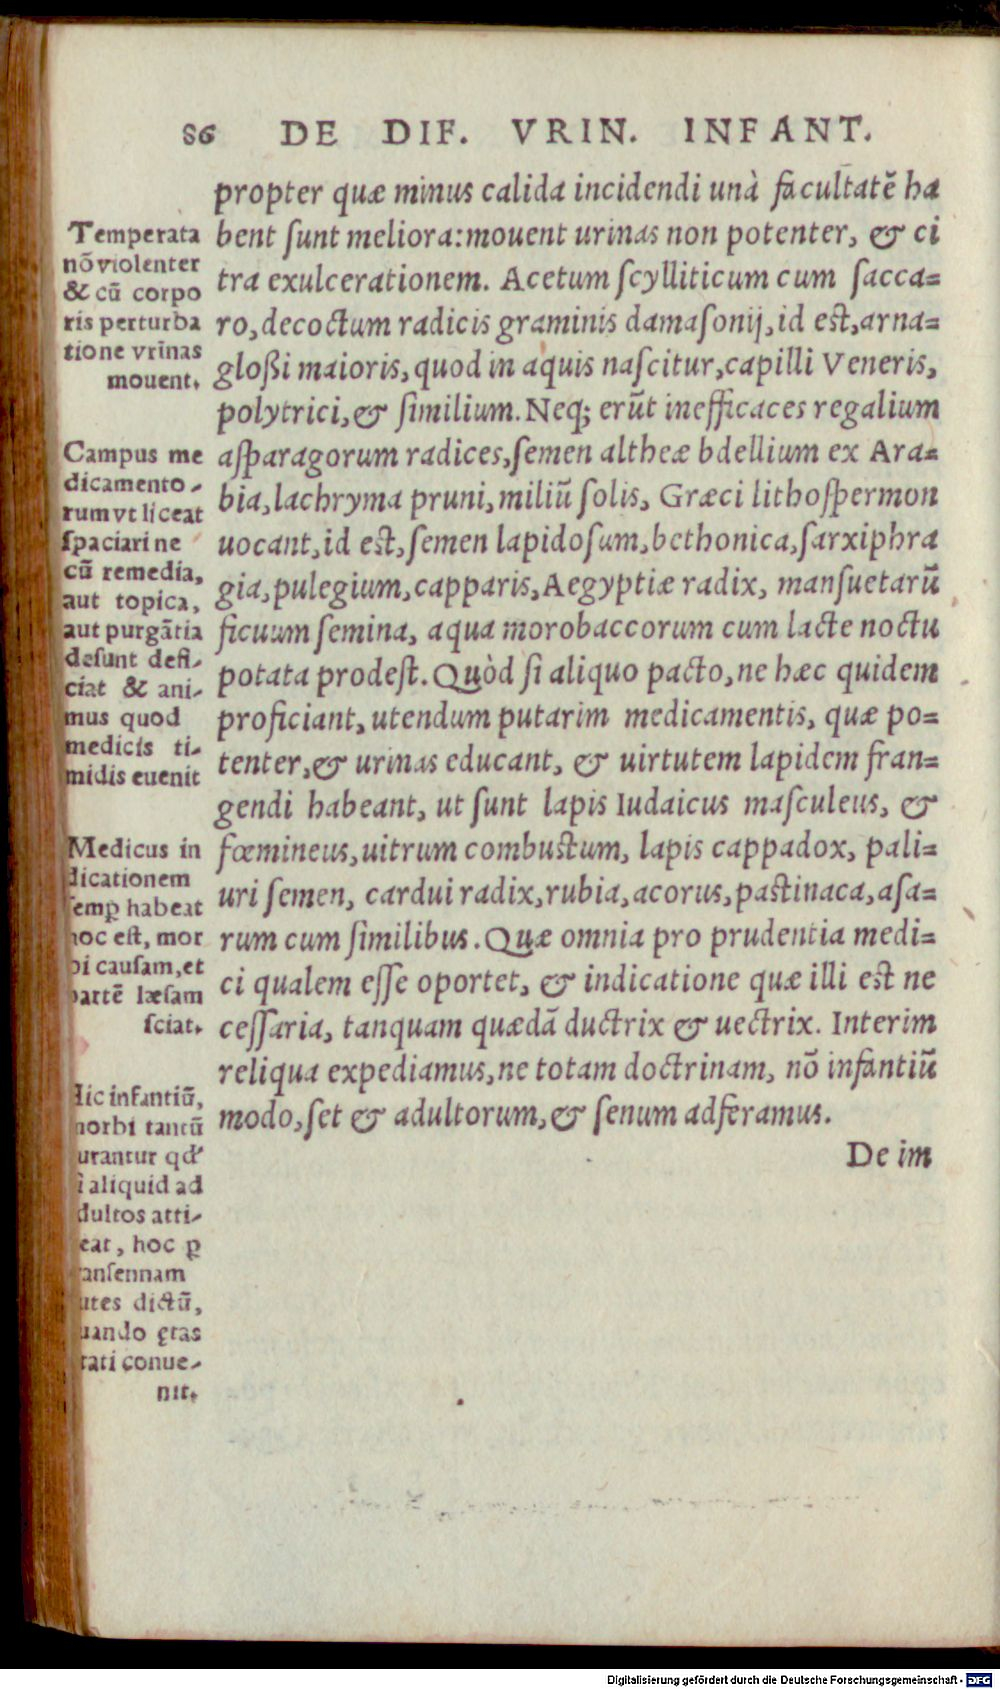 86 DE DIF. VRIN. INFANT.
propter quæ minus calida incidendi unà facultatē ha
bent ſunt meliora: mouent urinas non potenter, & ci
tra exulcerationem. Acetum ſcylliticum cum ſacca=
ro, decoctum radicis graminis damaſonij, id eſt, arna=
gloßi maioris, quod in aquis naſcitur, capilli Veneris,
polytrici, & ſimilium. Neq; erūt inefficaces regalium
aſparagorum radices, ſemen altheæ bdellium ex Ara=
bia, lachryma pruni, miliū ſolis, Græci lithoſpermon
uocant, id eſt, ſemen lapidoſum, bethonica, ſarxiphra
gia, pulegium, capparis, Aegyptiæ radix, manſuetarū
ficuum ſemina, aqua morobaccorum cum lacte noctu
potata prodeſt. Quòd ſi aliquo pacto, ne hæc quidem
proficiant, utendum putarim medicamentis, quæ po=
tenter, & urinas educant, & uirtutem lapidem fran=
gendi habeant, ut ſunt lapis Iudaicus maſculeus, &
fœmineus, uitrum combuſtum, lapis cappadox, pali=
uri ſemen, cardui radix, rubia, acorus, paſtinaca, aſa=
rum cum ſimilibus. Quæ omnia pro prudentia medi=
ci qualem eſſe oportet, & indicatione quæ illi eſt ne
ceſſaria, tanquam quædā ductrix & uectrix. Interim
reliqua expediamus, ne totam doctrinam, nō infantiū
modo, ſet & adultorum, & ſenum adferamus.
De im
Temperata
nō violenter
& cū corpo
ris perturba
tione vrinas
mouent.
Campus me
dicamento-
rum vt liceat
ſpaciari ne
cū remedia,
aut topica,
aut purgātia
deſunt defi-
ciat & ani-
mus quod
medicis ti-
midis euenit
Medicus in
dicationem
ſemꝑ habeat
hoc eſt, mor
bi cauſam, et
partē læſam
ſciat.
Hic infantiū,
morbi tantū
curantur qđ
ſi aliquid ad
adultos atti-
neat, hoc ꝑ
tranſennam
putes dictū,
quando ęras
tati conue-
nit.
Digitalisierung gefördert durch die Deutsche Forschungsgemeinschaft - DFG